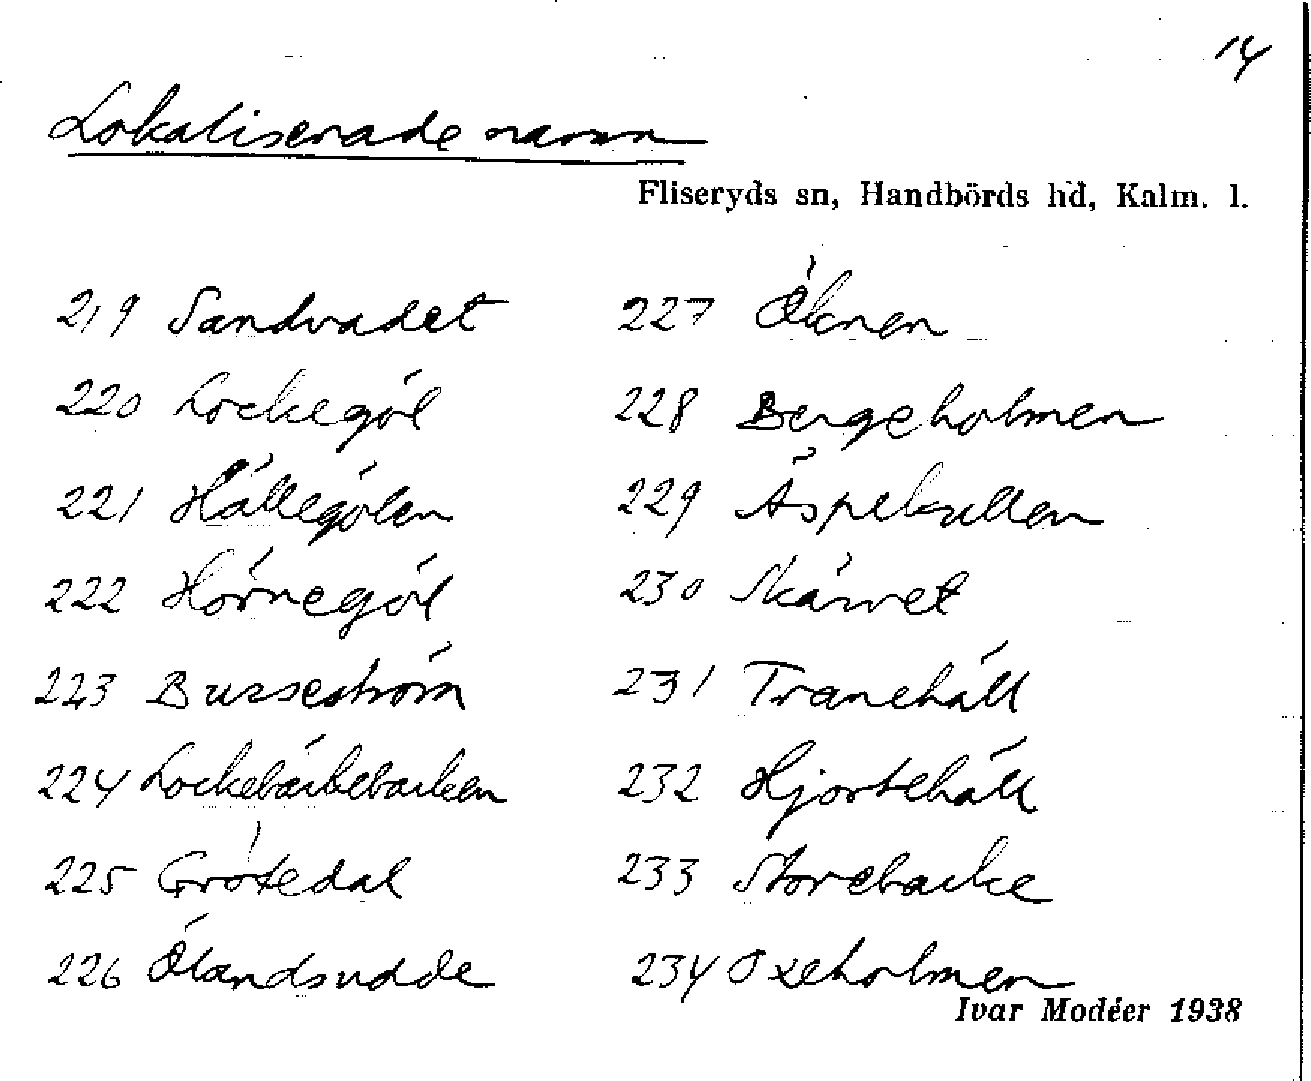 14
Lokaliserade namn
Fliseryds sn, Handbörds hd, Kalm. l.
219 Sandvadet
220 Lockegöl
221 Hällegölen
222 Hörnegöl
223 Busseström
224 Lockebäckebacken
225 Grötedal
226 Ölandsudde
227 Öknen
228 Bergeholmen
229 Äspekullen
230 Skärvet
231 Tranehäll
232 Hjortehäll
233 Storebacke
234 Oxeholmen
Ivar Modéer 1938